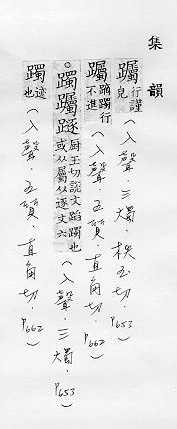 集韻
躅 行謹皃（入聲．三燭．樞玉切．P653）
躅 蹢躅行不進（入聲．五質．直角切．P662）
。躅躅𨃕 厨玉切說文蹢躅也或从屬从逐文六（入聲．三燭．P653）
躅 迹也（入聲．五質．直角切．P662）